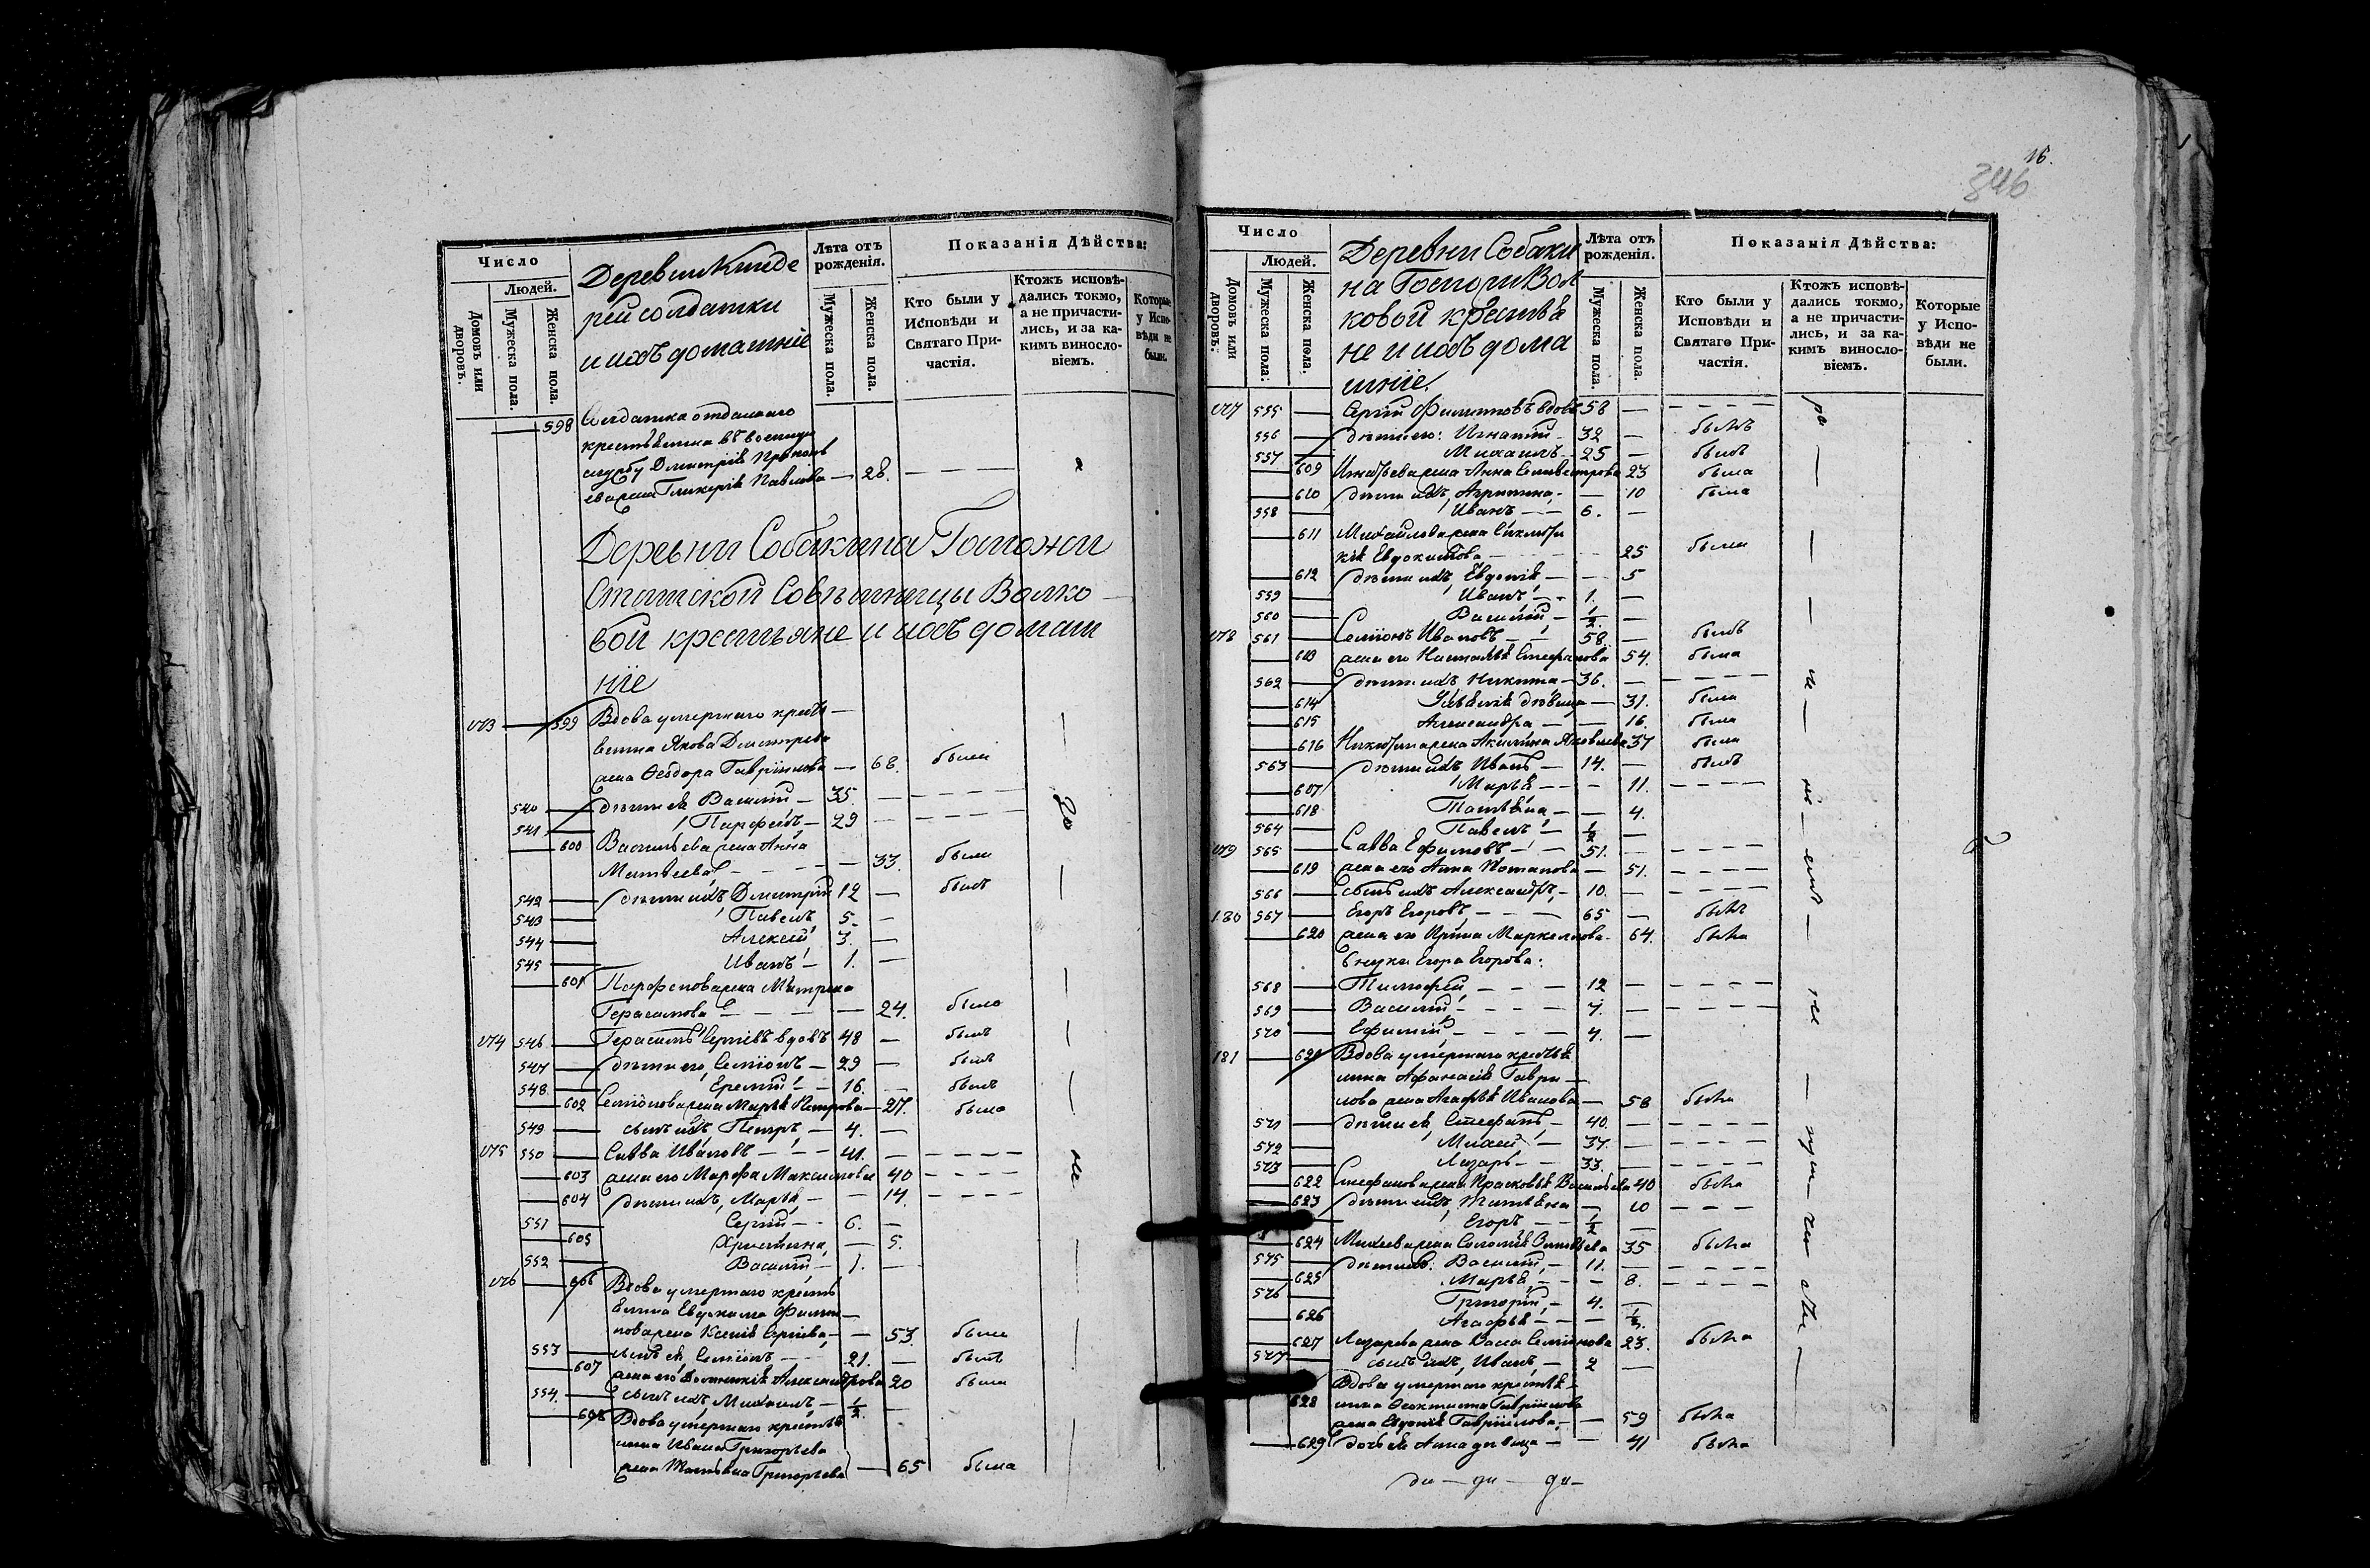 Число
Людей.
Домовъ или дворовъ.
Мужеска пола.
Женска пола.
Деревни
рей солдатки
и ихъ домашніе
Лѣта отъ рожденія.
Мужеска пола.
Женска пола.
Показанія Дѣйства:
Кто были у Исповѣди и Святаго Причастія.
Ктожъ исповѣдались токмо, а не причастились, и за какимъ винословіемъ.
Которые у Исповѣди не были.
598 Солдатка отданнаго
крестьянина въ военную
службу Димитрія
жена Гликерія Павлова — 28.
Деревни Собакина Госпожи
Статской Совѣтницы Волко
вой крестьяне и ихъ домаш
ніе
173 — 599 Вдова умершаго кресть
янина Якова Димитріева
жена Ѳеодора Гавріилова — 68. была
540 — дѣти ея Василій — 35. —
541 — Парфенъ — 29 —
— 600 Васильева жена Анна
Матвеева — 33. была
542 — дѣти ихъ Димитрій 12 — былъ
543 — Павелъ 5 —
544 — Алексей 3. —
545 — Иванъ — 1. —
— 601 Парфенова жена Матрена
Герасимова — 24. была
174 546 — Герасимъ Сергіевъ вдовъ 48 — былъ
547 — дѣти его, Семіонъ — 29 — былъ
548. — Еремій — 16. — былъ
— 602 Семіонова жена Марья Петрова — 27. была
549 — сынъ ихъ Петръ — 4. —
175 550 — Савва Ивановъ — 41. —
— 603 жена его Марфа Максимова 40
— 604 дѣти ихъ, Марья — 14.
551 — Сергій — 6. —
— 605 Христина — 5.
552 — Василій — 1. —
176 — 606 Вдова умершаго кресть
янина Евдокима Филип
пова жена Ксенія Сергіева — 53. была
553 — сынъ ея Семіонъ — 21. — былъ
— 607 жена его Александрова 20 была
554. — сынъ ихъ, Михаилъ — ½. —
— 608 Вдова умершаго крестья
нина Ивана Григорьева
жена Татьяна Григорьева — 65 была
16.
346
Число
Людей.
Домовъ или дворовъ.
Мужеска пола.
Женска пола.
Деревни Собаки
на Госпожи Вол
ковой крестья
не и ихъ дома
шніе
Лѣта отъ рожденія.
Мужеска пола.
Женска пола.
Показанія Дѣйства:
Кто были у Исповѣди и Святаго Причастія.
Ктожъ исповѣдались токмо, а не причастились, и за какимъ винословіемъ.
Которые у Исповѣди не были.
177 555 — Сергій Филиповъ вдовъ 58 —
556 — дѣти его: Игнатій — 32 — былъ
557 — Михаилъ — 25 — былъ
— 609 Игнатьева жена Анна Селивестрова 23 была
— 610 дѣти ихъ, Агрипина, — 10 была
558 — Иванъ — 6. —
— 611 Михайлова жена
Евдокимова — 25 была
— 612 дѣти ихъ, Евдокія — 5
559 — Иванъ — 1. —
560 — Василій — ½. —
178 561 — Семіонъ Ивановъ — 58. — былъ
— 613 жена его Наталья Стефанова 54. была
562 — дѣти ихъ Никита — 36. —
— 614 дѣвица — 31. была
— 615 Александра — 16. была
— 616 Никитина жена Акилина Яковлева 37 была
563 — дѣти ихъ Иванъ — 14. — былъ
— 607 Марья — 11.
— 618 Татьяна — 4.
564 — Павелъ — ½ —
179 565 — Савва Ефимовъ — 51. —
— 619 жена его Анна Потапова — 51.
566 — сынъ ихъ Александръ, — 10. —
180 567 — Егоръ Егоровъ, — 65 — былъ
— 620 жена его Ирина Маркелова — 64. была
Внуки Егора Егорова:
568 — Тимофей — 12 —
569 — Василій, — 7. —
570 — Ефимій, — 4. —
181 — 621 Вдова умершаго крестья
нина Афанасія Гаври
лова жена Агафья Иванова — 58 была
571 — дѣти ея, Стефанъ, — 40. —
572 — Михей — 37. —
573 — Лазарь — 33. —
— 622 Стефанова жена Прасковья Васильева 40 была
— 623 дѣти ихъ, Татьяна — 10
Егоръ — ½ —
— 624 Михеева жена 35 была
575 — дѣти ихъ: Василій, — 11. —
— 625 Марья, — 8.
576 — Григорій, — 4. —
— 626 Агафья — ½.
— 627 Лазарева жена Васса Семіонова 23. была
577 — сынъ ихъ, Иванъ, — 2 —
Вдова умершаго крестья
628 нина Феоктиста Гавріилова
жена Евдокія Гавріилова, — 59 была
— 629 дочь ея Анна дѣвица — 41 была